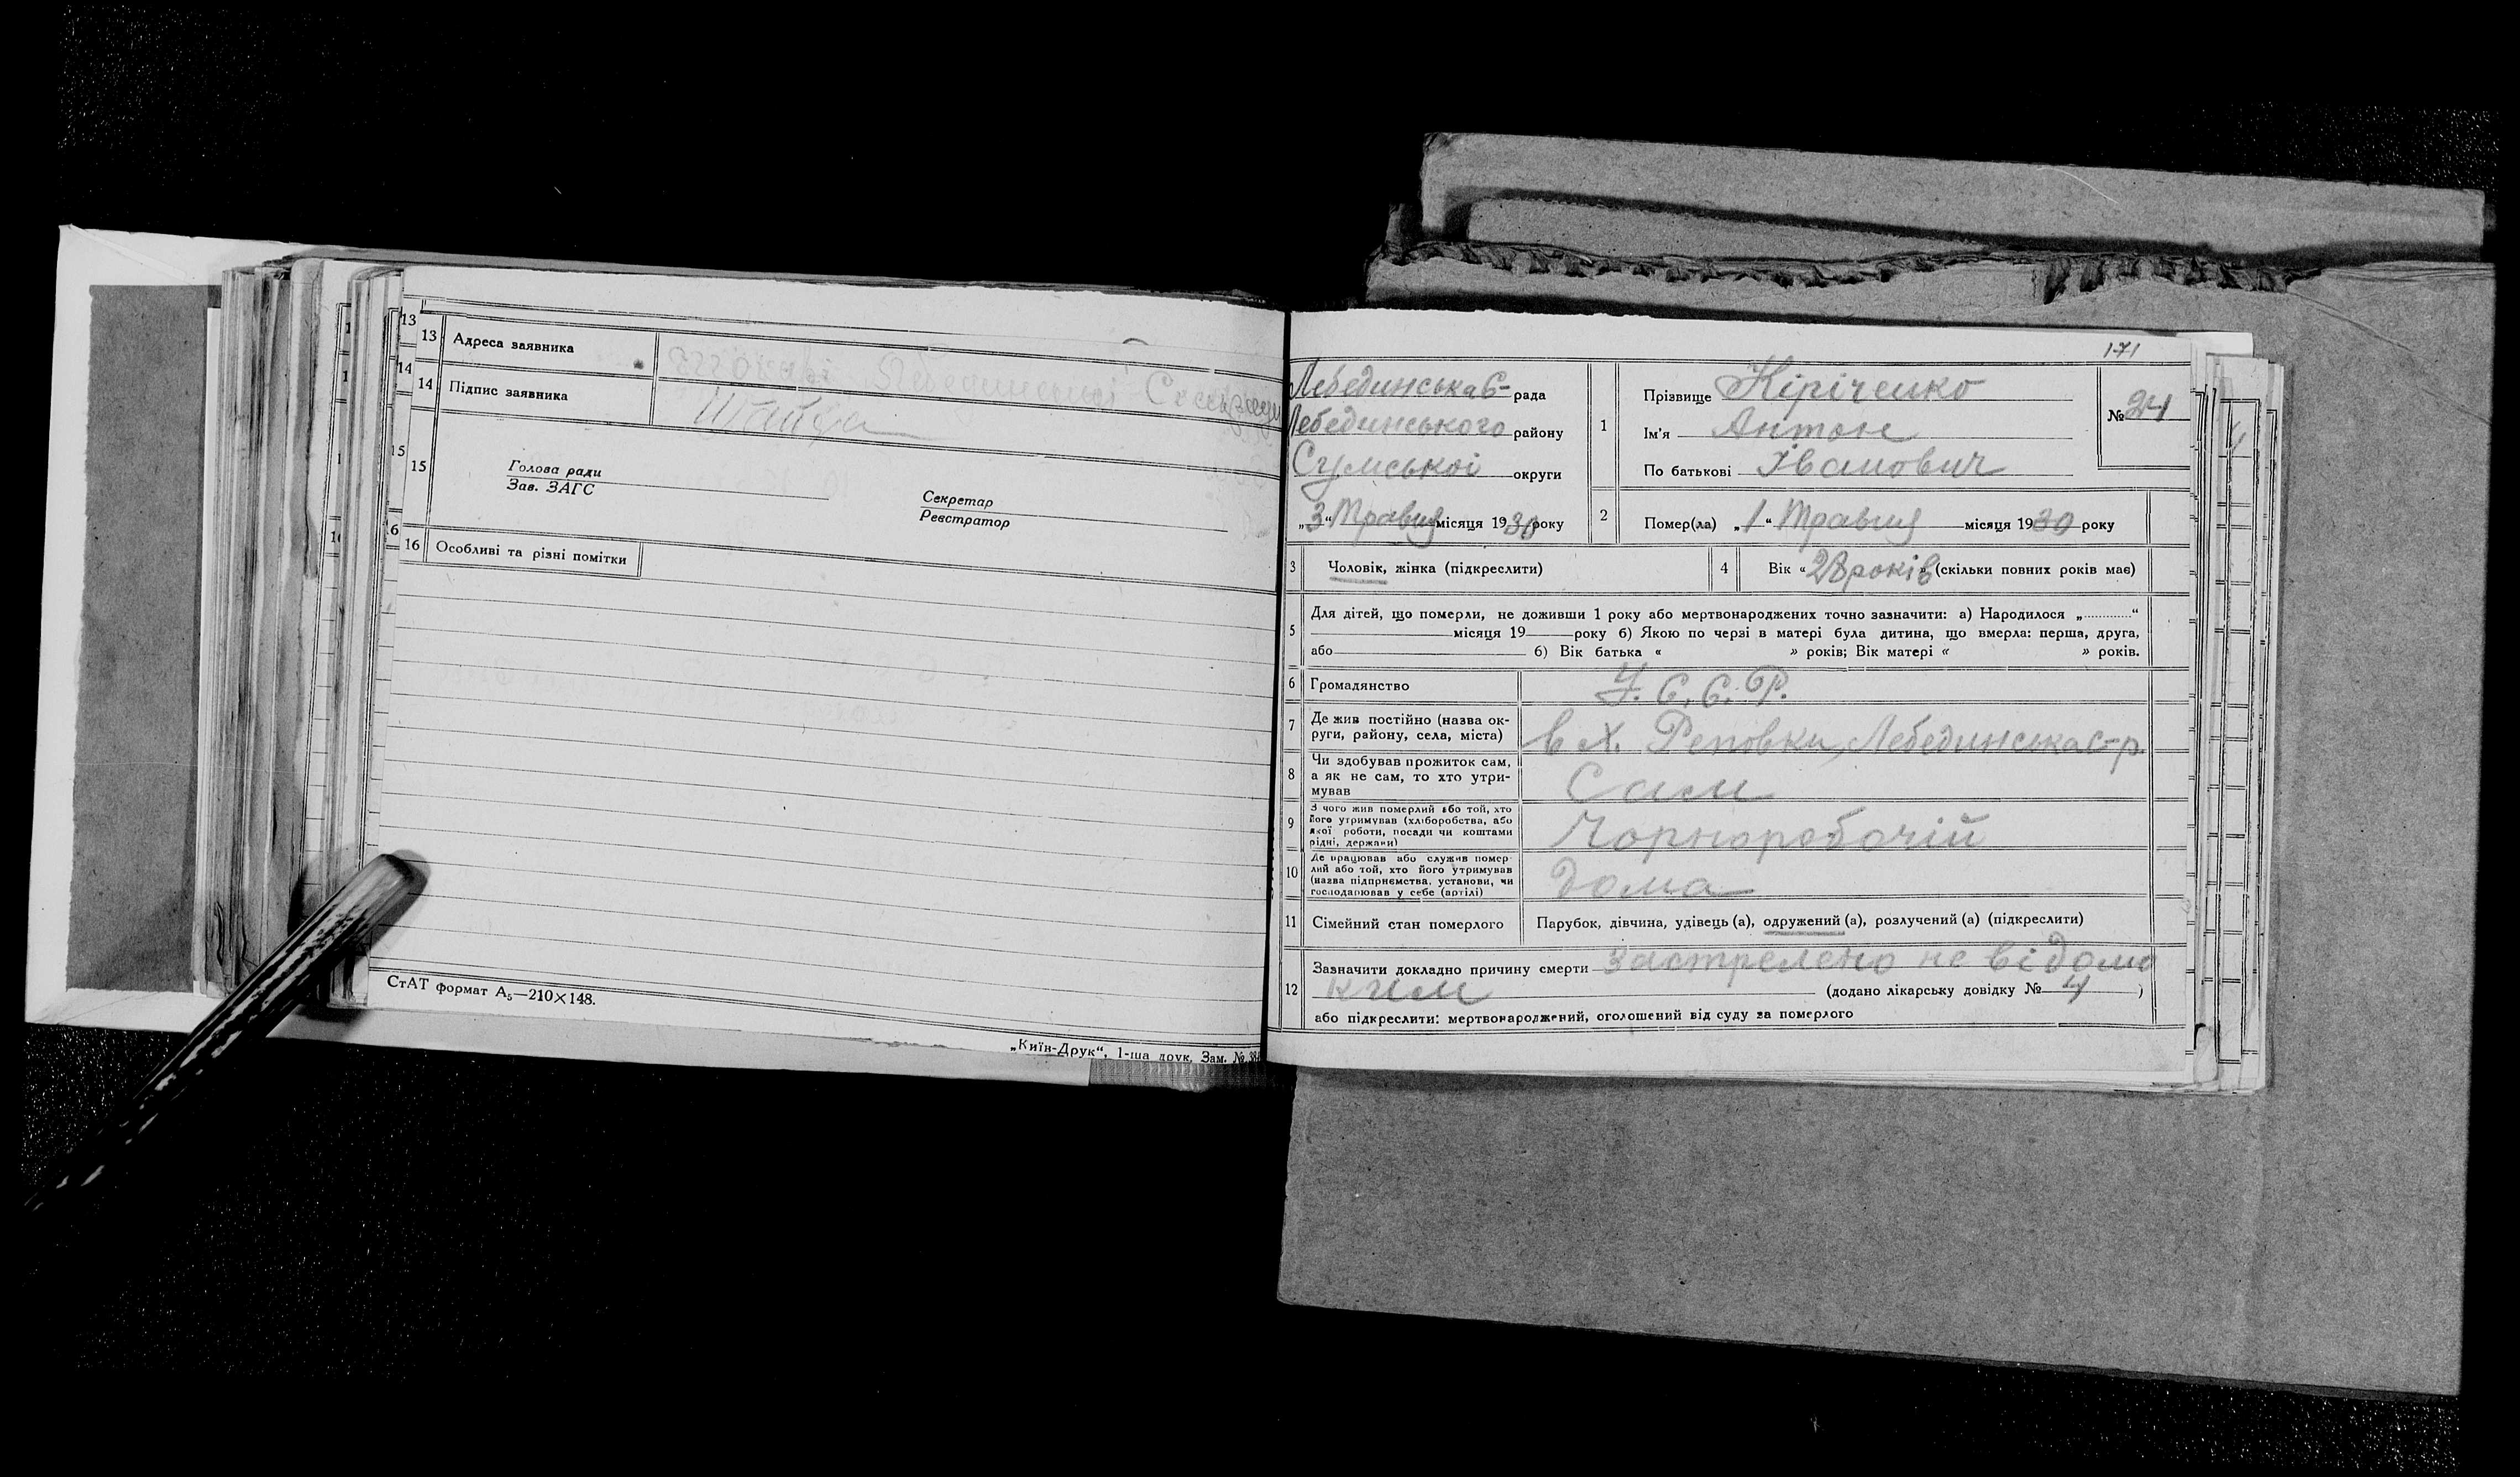 13 Адреса заявника
14 Підпис заявника
15 Голова ради
Зав. ЗАГС
Секретар
Реєстратор
16 Особливі та різні помітки
СтАТ формат А₅—210×148.
„Київ-Друк“, 1-ша друк. Зам. №
171
Лебединська с- рада
Лебединського району
Сумської округи
„3“ Травня місяця 1930 року
1 Прізвище Кіріченко
Ім'я Антон
По батькові Іванович
№ 24
2 Помер(ла) „1“ Травня місяця 1930 року
3 Чоловік, жінка (підкреслити)
4 Вік “28 років” (скільки повних років має)
5 Для дітей, що померли, не доживши 1 року або мертвонароджених точно зазначити: а) Народилося „............“
місяця 19 року б) Якою по черзі в матері була дитина, що вмерла: перша, друга,
або б) Вік батька « » років; Вік матері « » років.
6 Громадянство У. С. С. Р.
7 Де жив постійно (назва ок-
руги, району, села, міста) в х. Реповки, Лебединська с-р.
8 Чи здобував прожиток сам,
а як не сам, то хто утри-
мував Сам
9 З чого жив померлий або той, хто
його утримував (хліборобства, або
якої роботи, посади чи коштами
рідні, держави) Чорноробочій
10 Де працював або служив помер-
лий або той, хто його утримував
(назва підприємства, установи, чи
господарював у себе (артілі) дома
11 Сімейний стан померлого Парубок, дівчина, удівець (а), одружений (а), розлучений (а) (підкреслити)
12 Зазначити докладно причину смерти Застрелено не відомо
ким (додано лікарську довідку № 4 )
або підкреслити: мертвонароджений, оголошений від суду за померлого